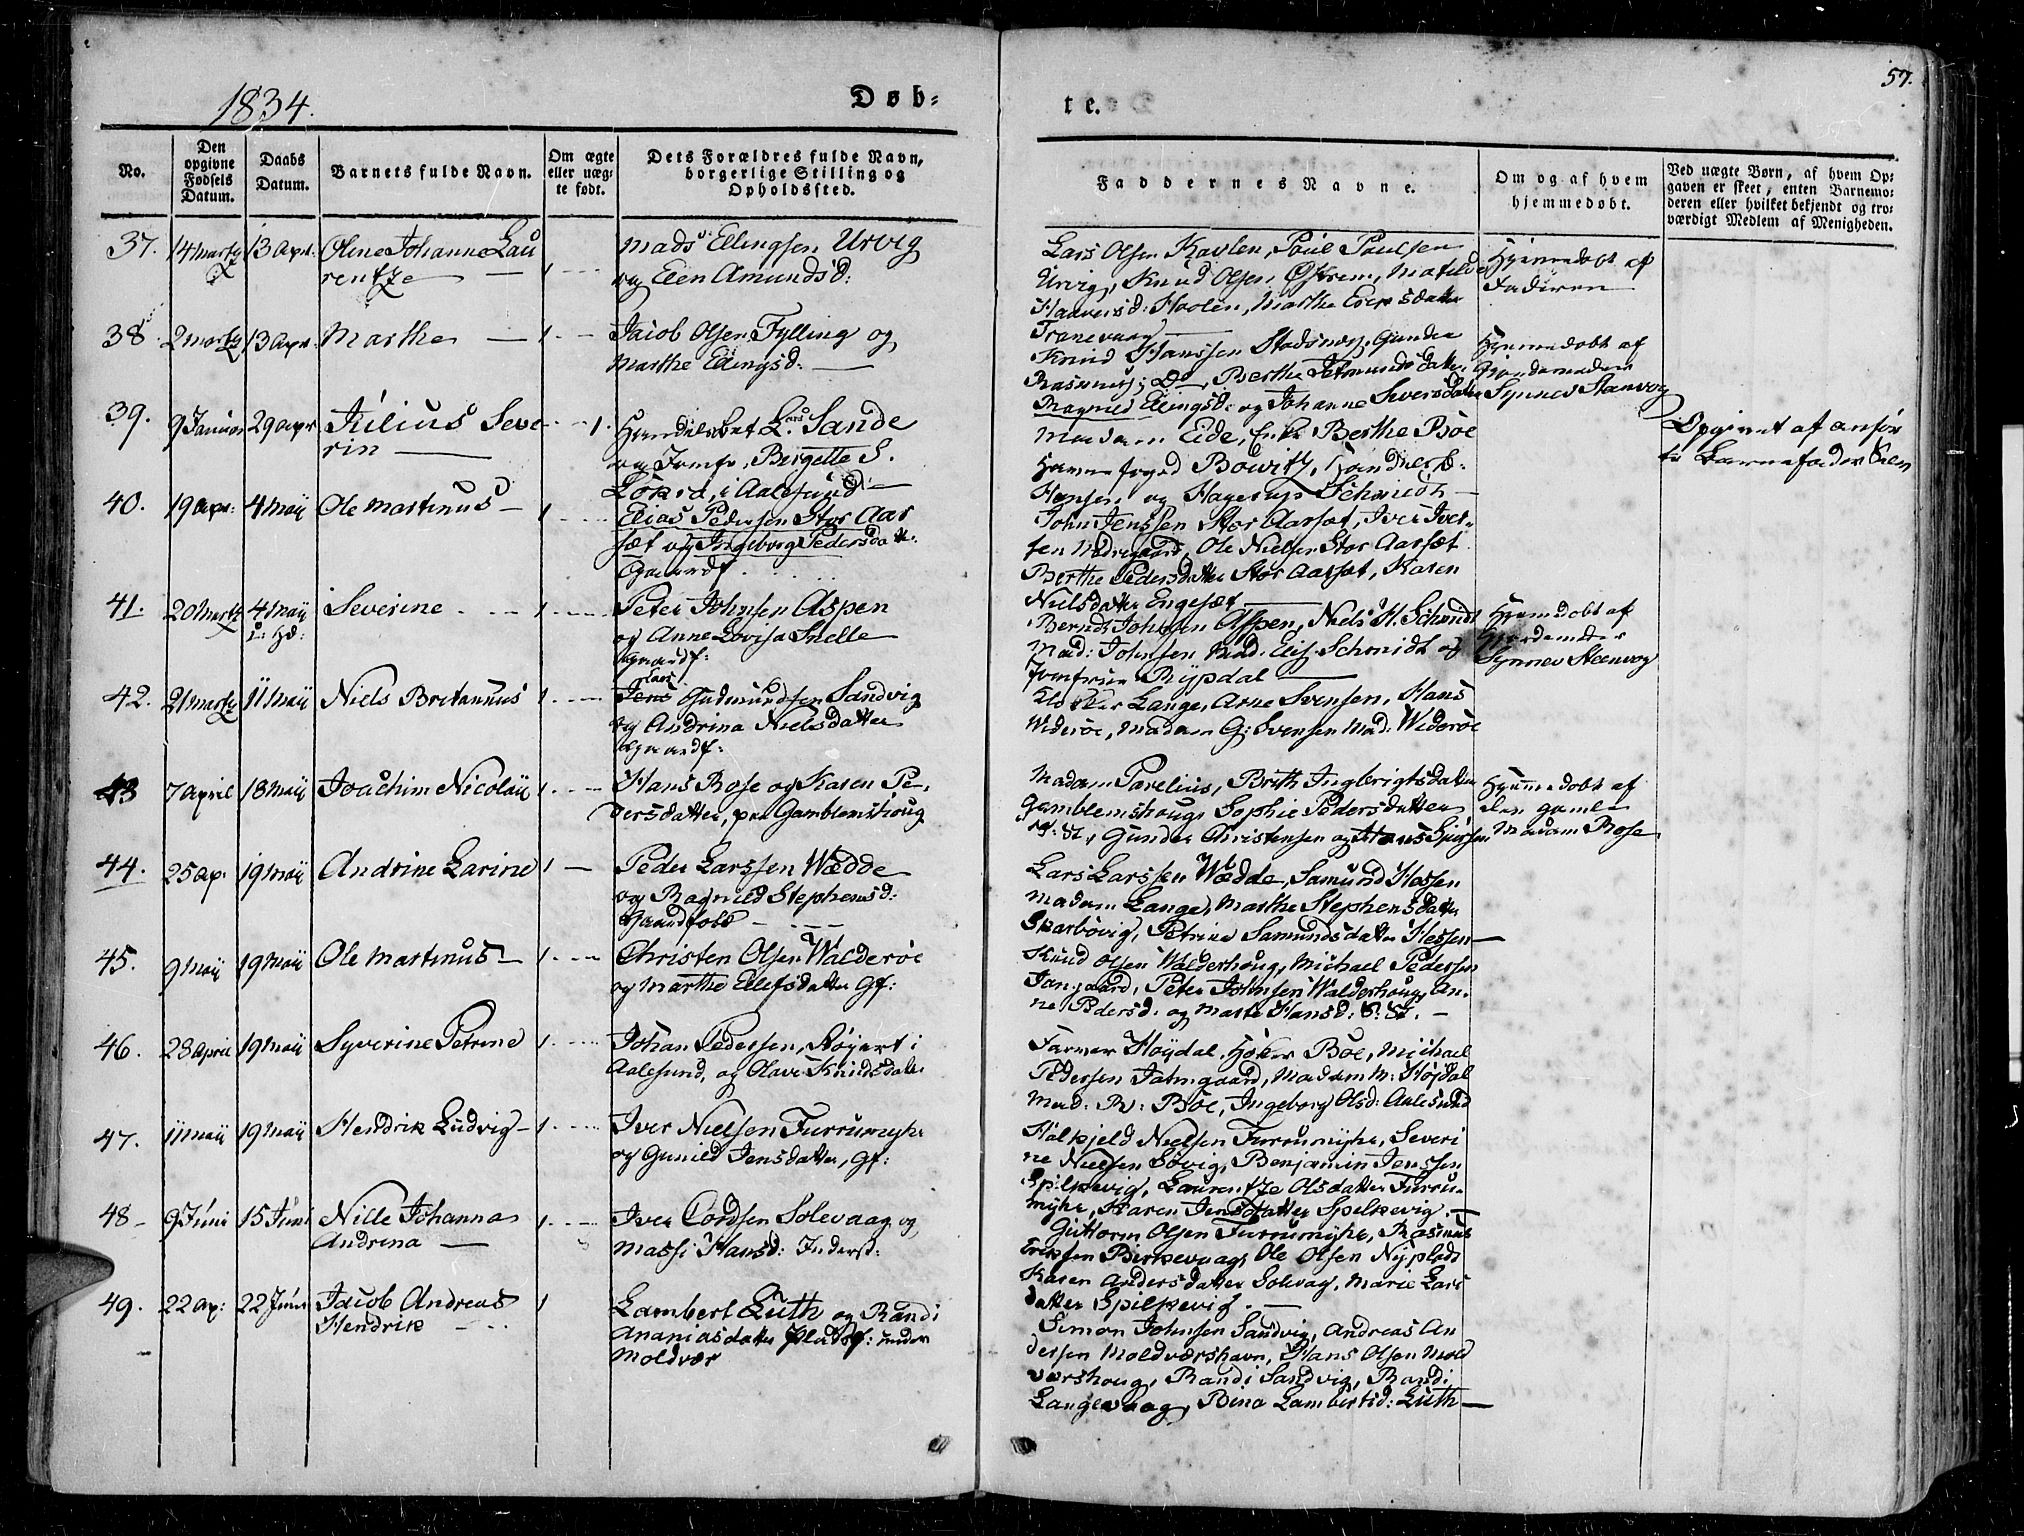 1834.
Døb-
te.
57.
No.
Den opgivne Fødsels Datum.
Daabs Datum.
Barnets fulde Navn.
Om ægte eller uæg- te født.
Dets Forældres fulde Navn, borgerlige Stilling og Opholdssted.
Faddernes Navne.
Om og af hvem hjemmedøbt.
Ved uægte Børn, af hvem Op- gaven er skeet, enten Barnemo- deren eller hvilket bekjendt og tro- værdigt Medlem af Menigheden.
37. 14 Marty 13 Apr. Oline Johanne Lau
rentze 1
Mads Ellingsen Urvig
og Elen Amundsd:
Lars Olsen Kavlen, Poul Poulsen
Urvig, Knud Olsen Østrem, Matilde
Haaversd: Hoolen, Marthe Ericsdatter
Tranevaag
Hjemmedøbt af
Faderen
38. 2 Marty 13 Apr. Marthe 1
Jacob Olsen Fylling og
Marthe Ellingsd:
Knud Hanssen Stadsnes, Gunder
Rasmuss: Do, Berthe Jetmundsdatter
Ragnild Ellingsd: og Johanne Siversdatter
Hjemmedøbt af
Gjordemoder
Synnev Steenvog
39. 9 Januar 29 Apr Julius Seve
rin 1.
Handelsbet. Lars Sande
og Jomfr. Bergette S.
Lökes, i Aalesund
Madam Eide, Enke Berthe Böe
Havnefoged Bowitz, Handverk:
Hansen og Hagerup Schmidt
Opgivet af anfør
te Barnefader Selv
40. 19 Apr: 4 Maij Ole Martinus 1
Elias Pedersen Stor Aar
sæt og Ingeborg Pedersdatt.
Gaardf.
John Jenssen Stor Aarsæt, Iver Iver-
sen Nedregaard, Ole Nielsen Stor Aarsæt
Berthe Pedersdatter Stor Aarsæt, Karen
Nielsdatter Engesæt
41. 20 Marty 4 Maij Severine 1
Peter Johnsen Aspen
og Anne Lovisa Snelle
Gaardf:
Bernt Johnsen Aspen, Niels H. Schmidt
Mad: Johnsen Mad. Elis. Schmidt og
Jomfrue Rypdal
Hjemmedøbt af
Gjordemoder
Synnev Steenvog
42. 21 Marty 11 Maij Niels Britannus 1
Lars
Jens Gudmundsen Sandvig
og Andrina Nielsdatter
Gaardf:
Klokker Lange, Arne Svensen, Hans
Wideröe, Madam G: Svensen Mad: Wideröe
43 7 April 18 Maij Joachim Nicolaij 1
Hans Rose og Karen Pe-
dersdatter, paa Gamblemshoug
Madam Pavelius, Brith Ingbrigtsdatter
Gamblemshoug, Sophie Pedersdatter
Gunder Christensen og Hans Siversen
Hjemmedøbt af
den gamle
Madam Rose
44. 25 Ap. 19 Maij Andrine Larine 1
Peder Larssen Wedde
og Ragnild Stephensd:
Gaardfolk
Lars Larssen Wedde, Samund Hessen
Madam Lange, Marthe Stephensdatter
Skarbövig, Petrine Samundsdatter Hessen
45. 9 Maij 19 Maij Ole Martinus 1
Christen Olsen Walderöe
og Marthe Ellefsdatter Gf:
Knud Olsen Walderhoug, Michael Pedersen
Jangaard, Peter Johnsen Walderhoug, An-
ne Pedersd. og Marte Hansd: S: St.
46. 28 April 19 Maij Syverine Petrine 1
Johan Pedersen, Röjert i
Aalesund, og Olave Knudsdatter
Farver Höydal, Höker Böe, Michael
Pedersen Jangaard, Madam M: Höjdal
Mad: R: Böe, Ingeborg Olsd: Aalesund
47. 11 Maij 19 Maij Hendrik Ludvig 1
Iver Nielsen Furrumyhr
og Gunild Jensdatter, Gf:
Halkjeld Nielsen Furrumyhr, Severi
ne Nielsen Sövig, Benjamin Jenssen
Spilkevig, Laurentze Olsdatter Furru-
myhr, Karen Jensdatter Spelkevig.
48 9 Juni 15 Juni Nille Johanna
Andrina 1
Iver Cordsen Solevaag og
Massi Hansd: Inderst:
Guttorm Olsen Furrumyhr, Rasmus
Eriksen Berkevaag, Ole Olsen Nyplads
Karen Andersdatter Solevag, Marie Lars
datter Spilkevig.
49. 22 Ap: 22 Juni Jacob Andreas
Hendrik 1
Lambert Lüth og Randi
Ananiasdatter Pladsf: under
Moldvær
Simon Johnsen Sandvig, Andreas An
dersen Moldværshavn, Hans Olsen Mold
værshoug, Randi Sandvig, Randi
Langevaag, Rina Lambertsd: Lüth